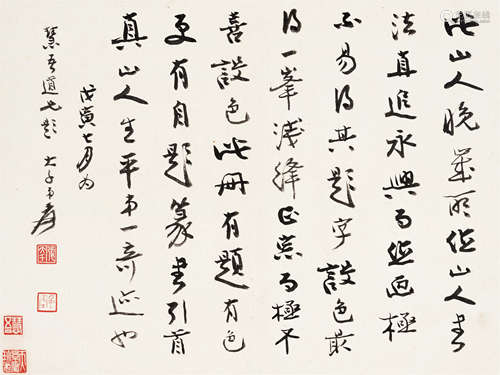 此山人晚歲所作山人書
法直追永興而作画極
不易得其題字設色最
得一峯淺絳正宗而極不
喜設色此册有題有色
更有自題篆書引首
真山人生平弟一奇迹也
戊寅七月為
慧吾道兄題 大千弟爰